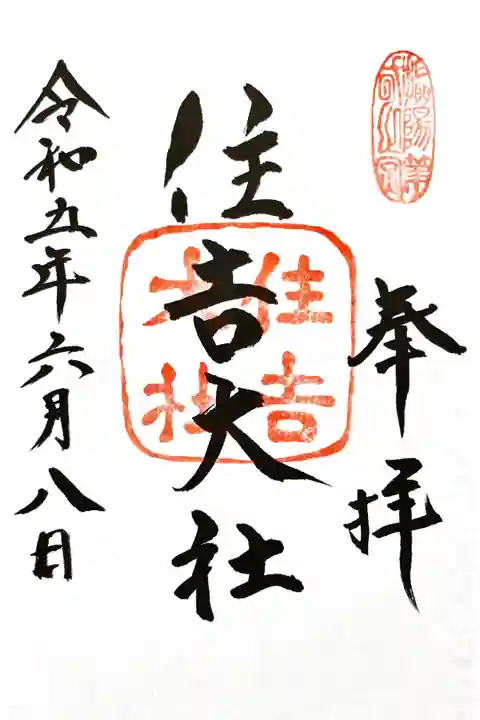 奉拝
住吉大社
住吉
大社
令和五年六月八日